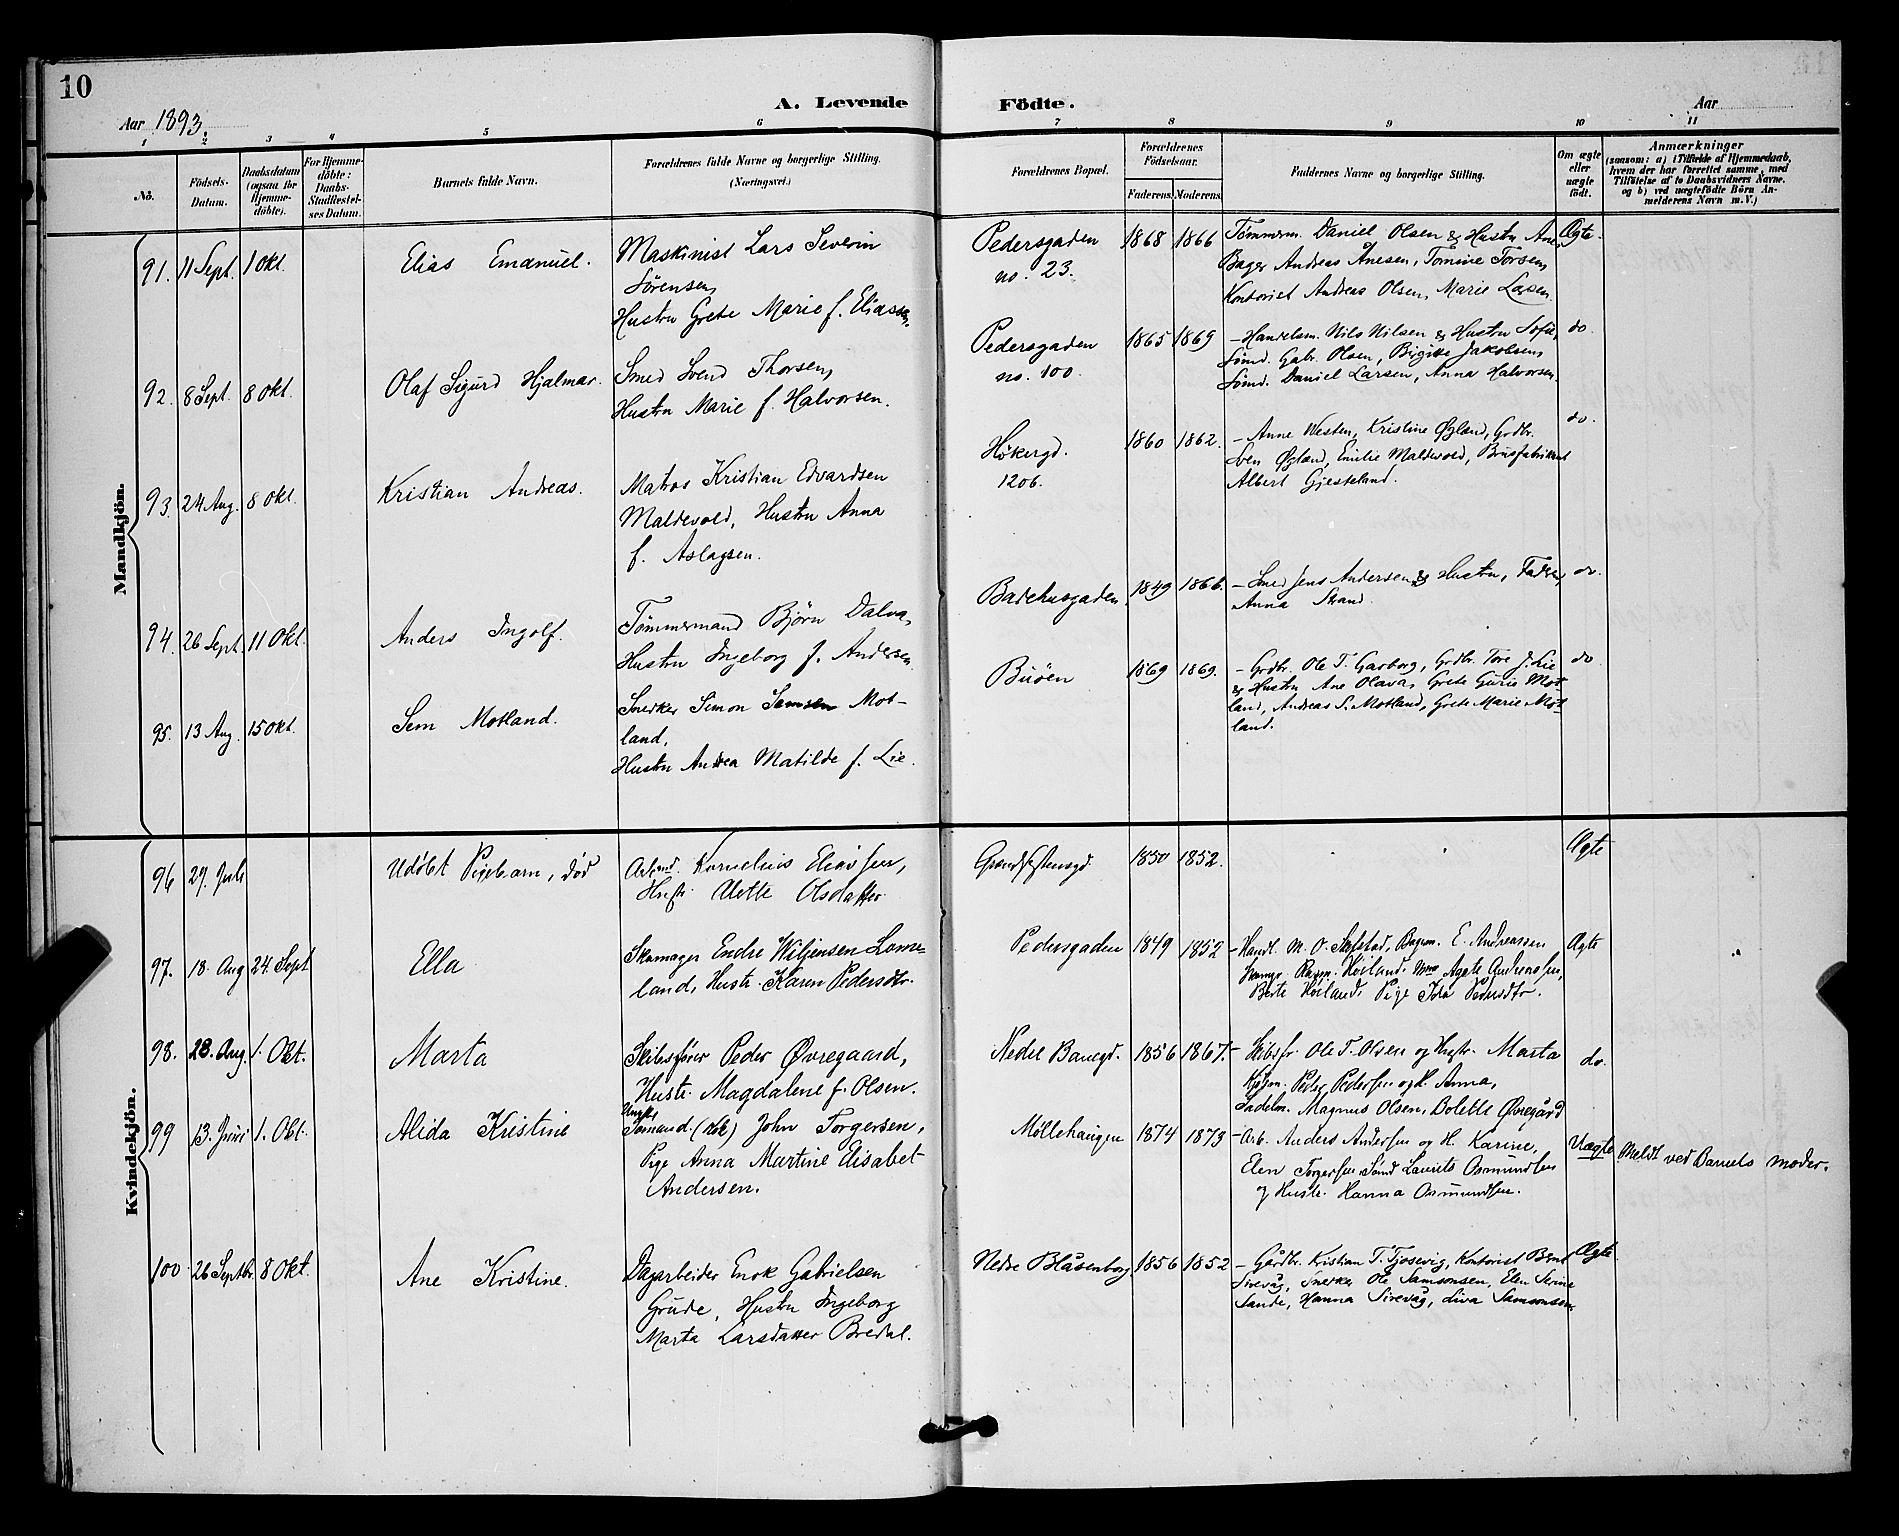 10
A. Levende Födte.
Aar 1893.
Aar
1 2 3 4 5 6 7 8 9 10 11
No.
Födsels-Datum.
Daabsdatum (ogsaa for Hjemme-döbte).
For Hjemme-döbte: Daabs-Stadfæstel-ses Datum.
Barnets fulde Navn.
Forældrenes fulde Navne og borgerlige Stilling. (Næringsvei.)
Forældrenes Bopæl.
Forældrenes Födselsaar.
Faderens. Moderens.
Faddernes Navne og borgerlige Stilling.
Om ægte eller uægte født.
Anmærkninger
(saasom: a) i Tilfælde af Hjemmedaab, hvem der har forrettet samme, med Tilföielse af to Daabsvidners Navne, og b) ved uægtefödte Börn An-melderens Navn m. V.)
Mandkjön.
91. 11 Sept. 1 Okt. Elias Emanuel.
Maskinist Lars Severin
Sörensen,
Hustru Grete Marie f. Eliassen.
Pedersgaden
no. 23.
1868 1866
Tömmerm. Daniel Olsen & Hustru Ane,
Bager Andreas Anesen, Tomine Torsen,
Kontorist Andreas Olsen, Marie Larsen.
Ægte.
92. 8 Sept. 8 Okt. Olaf Sigurd Hjalmar.
Smed Svend Thorsen,
Hustru Marie f. Halvorsen.
Pedersgaden
no. 100.
1865 1869
- Handelsm. Nils Nilsen & Hustru Sofie,
Sömd. Gabr. Olsen, Birgitte Jakobsen,
Sömd. Daniel Larsen, Anna Halvorsen.
do.
93. 24 Aug. 8 Okt. Kristian Andreas.
Matros Kristian Edvardsen
Maldevold, Hustru Anna
f. Aslagsen.
Hökergd.
1206.
1860 1862.
- Anne Westen, Kristine Øglænd, Grdbr.
Sven Øglænd, Emilie Maldevold, Brusfabrikant
Albert Gjesteland.
do.
94. 26 Sept. 11 Okt. Anders Ingolf.
Tömmermand Björn Dalva,
Hustru Ingeborg f. Andersen.
Badehusgaden.
1849 1866.
- Smed Jens Andersen & Hustru, Fader,
Anna Strand.
do.
95. 13 Aug. 15 Okt. Sem Motland.
Snerker Simon Samsen Mot-
land,
Hustru Andrea Matilde f. Lie.
Buöen
1869 1869.
- Grdbr. Ole T. Garborg, Grdbr. Tore J. Lie
& Hustru Ane Olava, Grete Gurie Mot-
land, Andreas S. Motland, Grete Marie Mot-
land.
do
Kvindekjön.
96 29. Juli Udöbt Pigebarn, död
Arbmd. Kornelius Eliassen,
Hustr. Olsdatter
1850 1852.
Ægte
97. 18. Aug 24. Sept Ella
Skomager Endre Wiljemsen Lome-
land, Hustr. Karen Pedersdtr.
Pedersgaden 1849 1852
- Handl. M. O. Skofstad, Bagm. E. Andreassen
Höiland, Agate Andreassen,
Berte Höiland, Pige Ida Pedersdtr.
Ægte
98. 28. Aug. 1. Okt. Marta
Skibsförer Peder Øvregaard,
Hustr. Magdalene f. Olsen.
Nedre Banegd. 1856 1867.
- Skibsfr. Ole T. Olsen og Hustr. Marta
Kjöbm. Peder Pedersen og H. Anna,
Sadelm. Magnus Olsen, Bolette Øvregård
do.
99 13. Juni 1. Okt. Alida Kristine
Ungk.
Sömand. (Kok) John Torgersen,
Pige Anna Martine Elisabet
Andersen.
Möllehaugen 1874 1873
- Arb. Anders Andersen og H. Karine,
Elen Torgersen, Sömd Laurits Osmundsen
og Hustr. Hanna Osmundsen.
Uægte
Meldt ved Barnets Moder.
100 26 Septbr. 8 Okt. Ane Kristine.
Dagarbeider Enok Gabrielsen
Grude, Hustru Ingeborg
Marta Larsdatter Bredal.
Nedre Blåsenborg 1856 1852
- Gårdbr. Kristian T. Tjosevig, Kontorist Bernt
Sirevåg, Snerker Ole Samsonsen, Elen Serine
Sande, Hanna Sirevåg, Liva Samsonsen.
Ægte